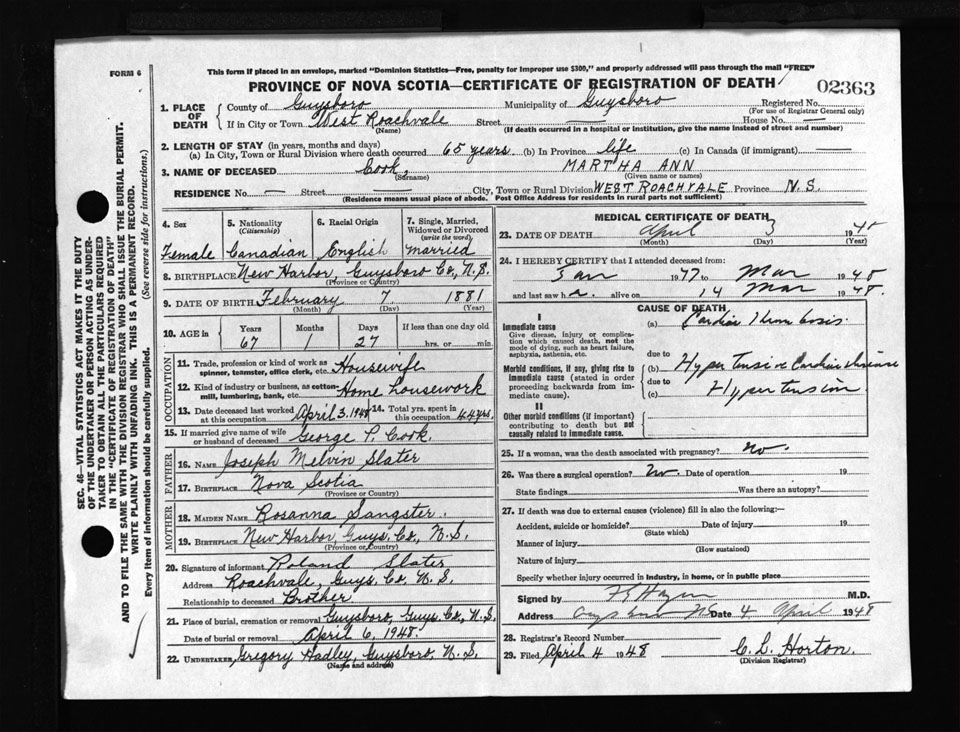 FORM 6
This form if placed in an envelope, marked "Dominion Statistics—Free, penalty for improper use $300," and properly addressed will pass through the mail "FREE"
PROVINCE OF NOVA SCOTIA—CERTIFICATE OF REGISTRATION OF DEATH
02363
1. PLACE OF DEATH { County of Guysboro Municipality of Guysboro Registered No.
(For use of Registrar General only)
If in City or Town West Roachvale Street — House No. —
(Name) (If death occurred in a hospital or institution, give the name instead of street and number)
2. LENGTH OF STAY (in years, months and days)
(a) In City, Town or Rural Division where death occurred 65 years. (b) In Province life (c) In Canada (if immigrant) —
3. NAME OF DECEASED Cook, MARTHA ANN
(Surname) (Given name or names)
RESIDENCE No. — Street — City, Town or Rural Division WEST ROACHVALE Province N.S.
(Residence means usual place of abode. Post Office Address for residents in rural parts not sufficient)
4. Sex 5. Nationality (Citizenship) 6. Racial Origin 7. Single, Married, Widowed or Divorced (write the word)
Female Canadian English married
8. BIRTHPLACE New Harbor, Guysboro Co, N.S.
(Province or Country)
9. DATE OF BIRTH February 7 1881
(Month) (Day) (Year)
10. AGE in { Years Months Days If less than one day old
67 1 27 hrs. or min.
OCCUPATION
11. Trade, profession or kind of work as spinner, teamster, office clerk, etc. Housewife
12. Kind of industry or business, as cotton-mill, lumbering, bank, etc. Home housework
13. Date deceased last worked at this occupation April 3. 1948 14. Total yrs. spent in this occupation 44 yrs.
15. If married give name of wife or husband of deceased George P. Cook.
FATHER
16. NAME Joseph Melvin Slater
17. BIRTHPLACE Nova Scotia
(Province or Country)
MOTHER
18. MAIDEN NAME Rosanna Sangster.
19. BIRTHPLACE New Harbor, Guys. Co, N.S.
(Province or Country)
20. Signature of informant Roland Slater
Address Roachvale, Guys. Co N.S.
Relationship to deceased Brother.
21. Place of burial, cremation or removal Guysboro, Guys Co, N.S.
Date of burial or removal April 6, 1948.
22. UNDERTAKER, Gregory Hadley, Guysboro N.S.
(Name and address)
MEDICAL CERTIFICATE OF DEATH
23. DATE OF DEATH April 3 1948
(Month) (Day) (Year)
24. I HEREBY CERTIFY that I attended deceased from:
19 to Mar 1948
and last saw h alive on 14 Mar 1948.
CAUSE OF DEATH
I
Immediate cause
Give disease, injury or complication which caused death, not the mode of dying, such as heart failure, asphyxia, asthenia, etc.
(a) Cardiac Thrombosis.
due to
Morbid conditions, if any, giving rise to immediate cause (stated in order proceeding backwards from immediate cause).
(b) Hypertensive Cardiac disease
due to
(c) Hypertension
II
Other morbid conditions (if important) contributing to death but not causally related to immediate cause.
25. If a woman, was the death associated with pregnancy? no.
26. Was there a surgical operation? no. Date of operation 19
State findings Was there an autopsy?
27. If death was due to external causes (violence) fill in also the following:—
Accident, suicide or homicide? Date of injury 19
(State which)
Manner of injury
(How sustained)
Nature of injury
Specify whether injury occurred in industry, in home, or in public place
Signed by M.D.
Address Guysboro NS Date 4 April 1948
28. Registrar's Record Number
29. Filed April 4 1948 C. L. Horton.
(Division Registrar)
SEC. 46—VITAL STATISTICS ACT MAKES IT THE DUTY
OF THE UNDERTAKER OR PERSON ACTING AS UNDER-
TAKER TO OBTAIN ALL THE PARTICULARS REQUIRED
IN THE "CERTIFICATE OF REGISTRATION OF DEATH"
AND TO FILE THE SAME WITH THE DIVISION REGISTRAR WHO SHALL ISSUE THE BURIAL PERMIT.
WRITE PLAINLY WITH UNFADING INK. THIS IS A PERMANENT RECORD.
Every item of information should be carefully supplied. (See reverse side for instructions.)